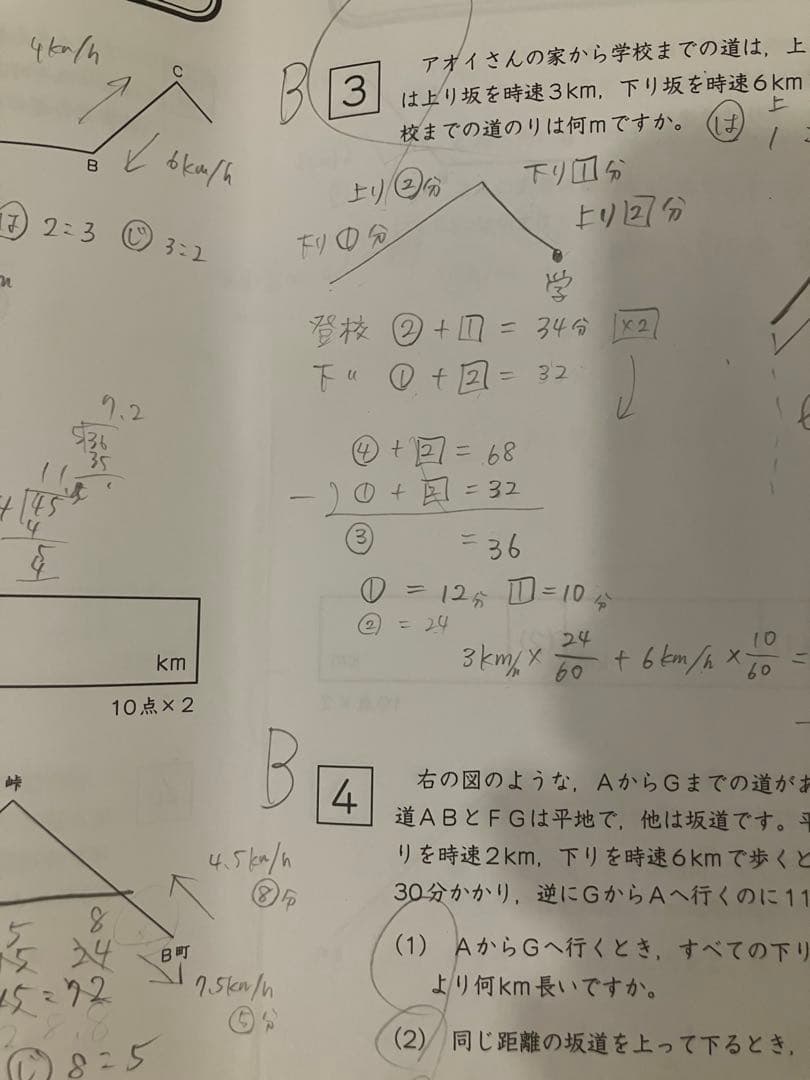 4km/h
C
B
6km/h
は 2:3 じ 3:2
7.2
5)36
35
11
4)45
4
5
4
km
10点×2
峠
4.5km/h
⑧分
B町
7.5km/h
⑤分
5 8
15 24
45=72
じ 8=5
B 3 アオイさんの家から学校までの道は，上
は上り坂を時速3km，下り坂を時速6km
校までの道のりは何mですか。 は 上
1
上り②分 下り1分
上り2分
下り①分
学
登校 ②+1=34分 ×2
下〃 ①+2=32
④+2=68
−)①+2=32
③ =36
①=12分 1=10分
②=24
3km/h×24/60+6km/h×10/60=
B 4 右の図のような，AからGまでの道があ
道ABとFGは平地で，他は坂道です。平
りを時速2km，下りを時速6kmで歩くと
30分かかり，逆にGからAへ行くのに11
(1) AからGへ行くとき，すべての下り
より何km長いですか。
(2) 同じ距離の坂道を上って下るとき，